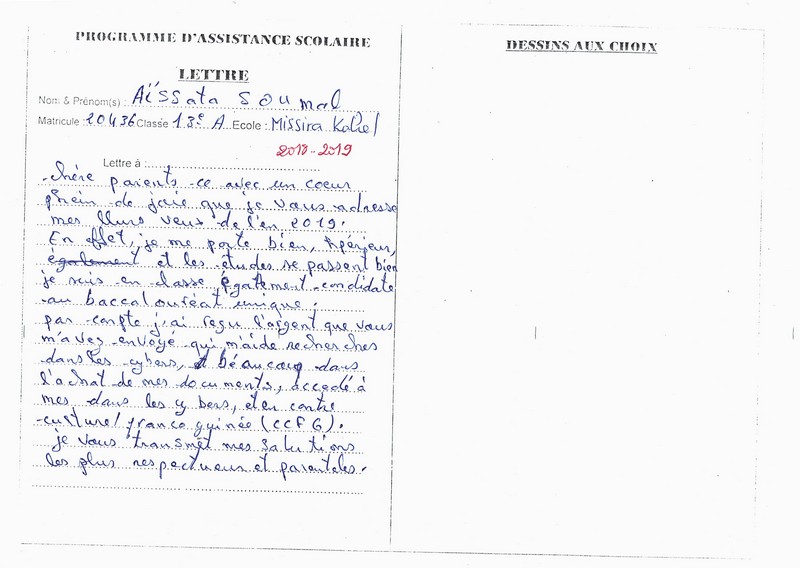 PROGRAMME D'ASSISTANCE SCOLAIRE
LETTRE
Nom & Prénom(s) : Aïssata Soumah
Matricule : 20436 Classe 13e A Ecole : Missira Kahel
2018-2019
Lettre à :
chère parents ce avec un coeur
plein de joie que je vous adresse
mes llurs veux de l'en 2019.
En effet, je me porte bien,
également et les études se passent bien
je suis en classe également candidate
au baccalouréat unique ;
par conpte j'ai reçu l'argent que vous
m'avez envoyé qui m'aide recherches
dans les cybers, et béaucoup dans
l'achat de mes documents, accedé à
mes dans les cybers, et en contre
culturel franco guinée (CCFG).
je vous transmet mes salutions
les plus respectueux et parenteles.
DESSINS AUX CHOIX